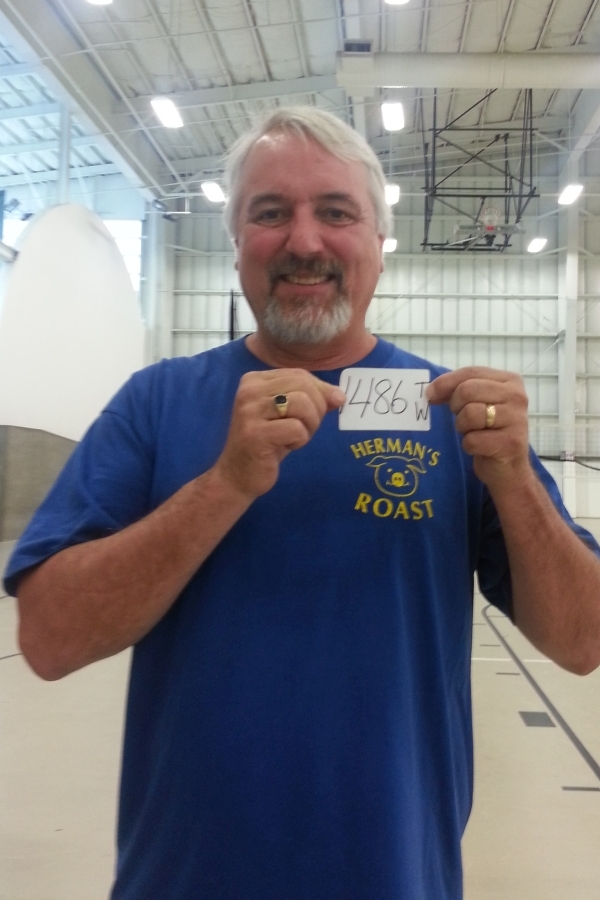 1486 T
W
HERMAN'S
ROAST